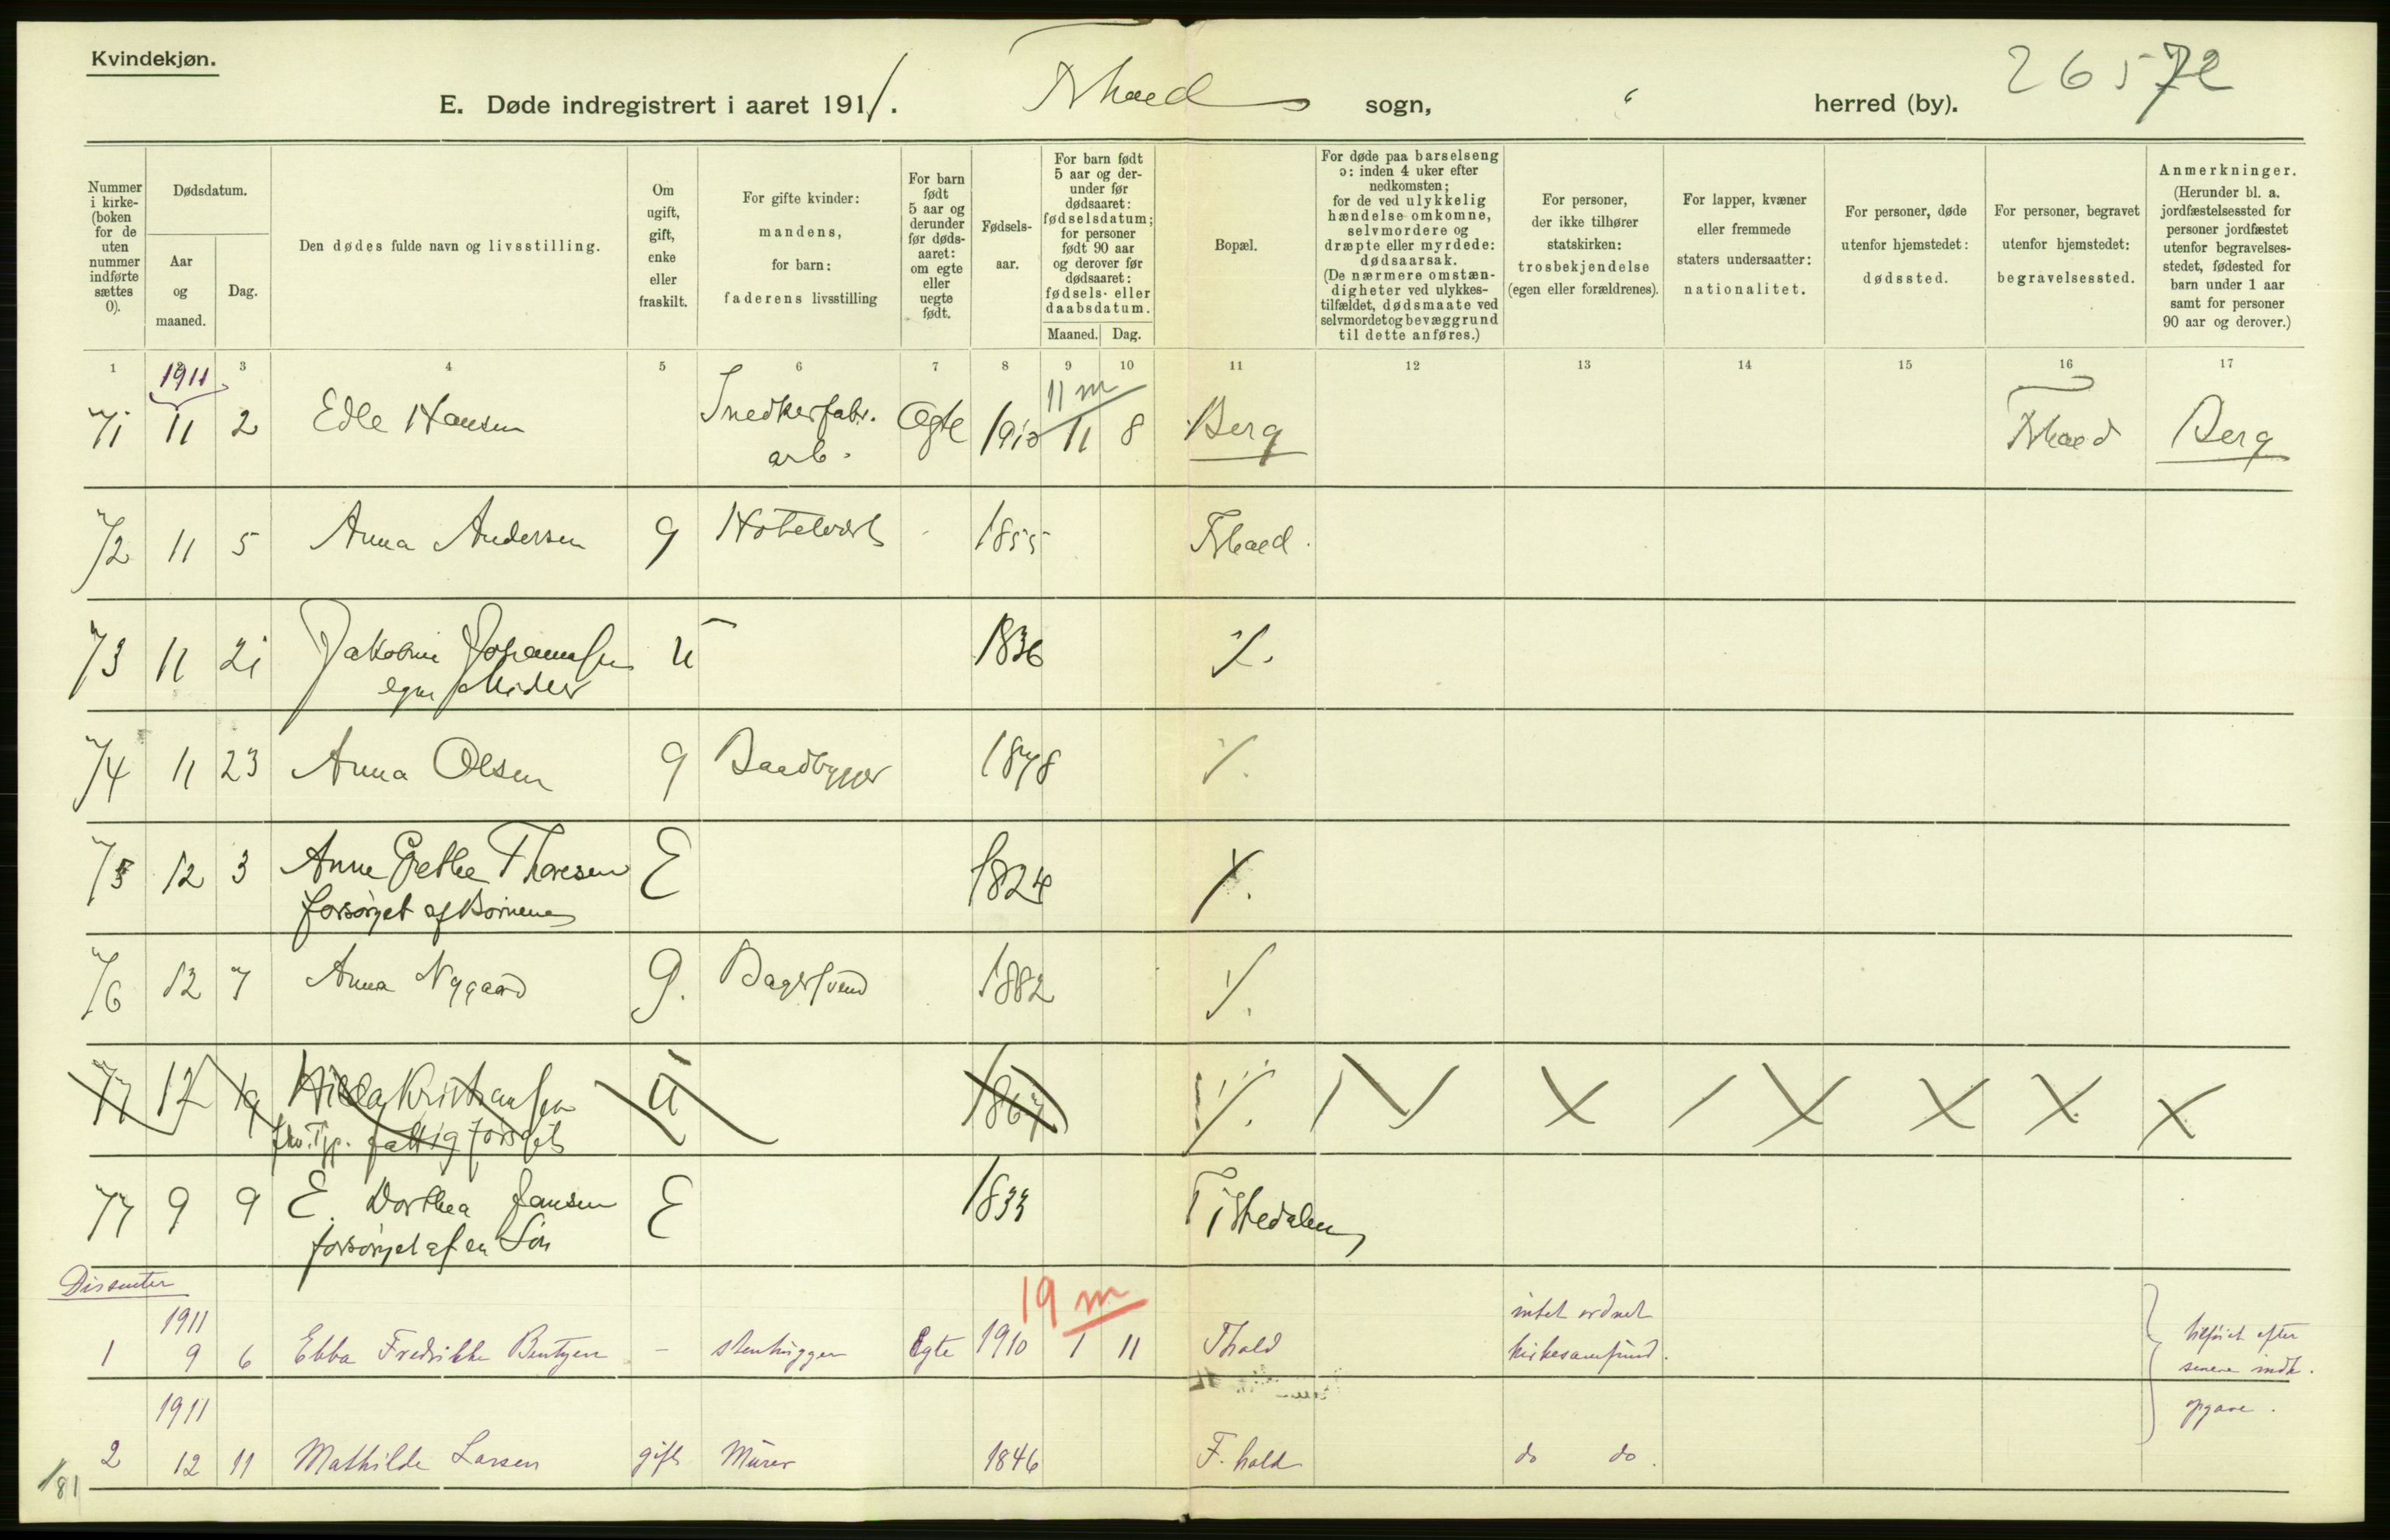 Kvindekjøn.
26572
E. Døde indregistrert i aaret 1911. Fr.hald sogn, " herred (by).
Nummer i kirke-(boken for de uten nummer indførte sættes 0).
Dødsdatum.
Aar og maaned.
Dag.
Den dødes fulde navn og livsstilling.
Om ugift, gift, enke eller fraskilt.
For gifte kvinder: mandens, for barn: faderens livsstilling
For barn født 5 aar og derunder før døds-aaret: om egte eller uegte født.
Fødsels-aar.
For barn født 5 aar og der-under før dødsaaret: fødselsdatum; for personer født 90 aar og derover før dødsaaret: fødsels- eller daabsdatum.
Maaned. Dag.
Bopæl.
For døde paa barselseng ɔ: inden 4 uker efter nedkomsten; for de ved ulykkelig hændelse omkomne, selvmordere og dræpte eller myrdede: dødsaarsak. (De nærmere omstæn-digheter ved ulykkes-tilfældet, dødsmaate ved selvmordet og bevæggrund til dette anføres.)
For personer, der ikke tilhører statskirken: trosbekjendelse (egen eller forældrenes).
For lapper, kvæner eller fremmede staters undersaatter: nationalitet.
For personer, døde utenfor hjemstedet: dødssted.
For personer, begravet utenfor hjemstedet: begravelsessted.
Anmerkninger. (Herunder bl. a. jordfæstelsessted for personer jordfæstet utenfor begravelses-stedet, fødested for barn under 1 aar samt for personer 90 aar og derover.)
1 2 3 4 5 6 7 8 9 10 11 12 13 14 15 16 17
1911
11 m
71 11 2 Edle Hansen Snedkerfabr. arb. Egte 1910 11 8 Berg Fr.hald Berg
72 11 5 Anna Andersen g Hotelvært 1855 Fr.hald.
73 11 21 Jakobine Johannesen u 1836 ٪.
egne Midler
74 11 23 Anna Olsen g Baadbygger 1878 ٪.
75 12 3 Anne Grethe Thoresen E 1824 ٪.
forsørget af Børnene
76 12 7 Anna Nygaard g. Bagersvend 1882 ٪.
77 12 19 Hilda Kristiansen u 1867 ٪.
fattig forsørget
77 9 9 E. Dorthea Jansen E 1833 Tistedalen
forsørget af en Søn
Dissenter
19 m
1911
1 9 6 Ebba Fredrikke Bentzen - stenhugger Egte 1910 1 11 F.hald intet ordnet
kirkesamfund.
tilføiet efter
senere indk.
opgave.
1911
2 12 11 Mathilde Larsen gift Murer 1846 F.hald do do.
181